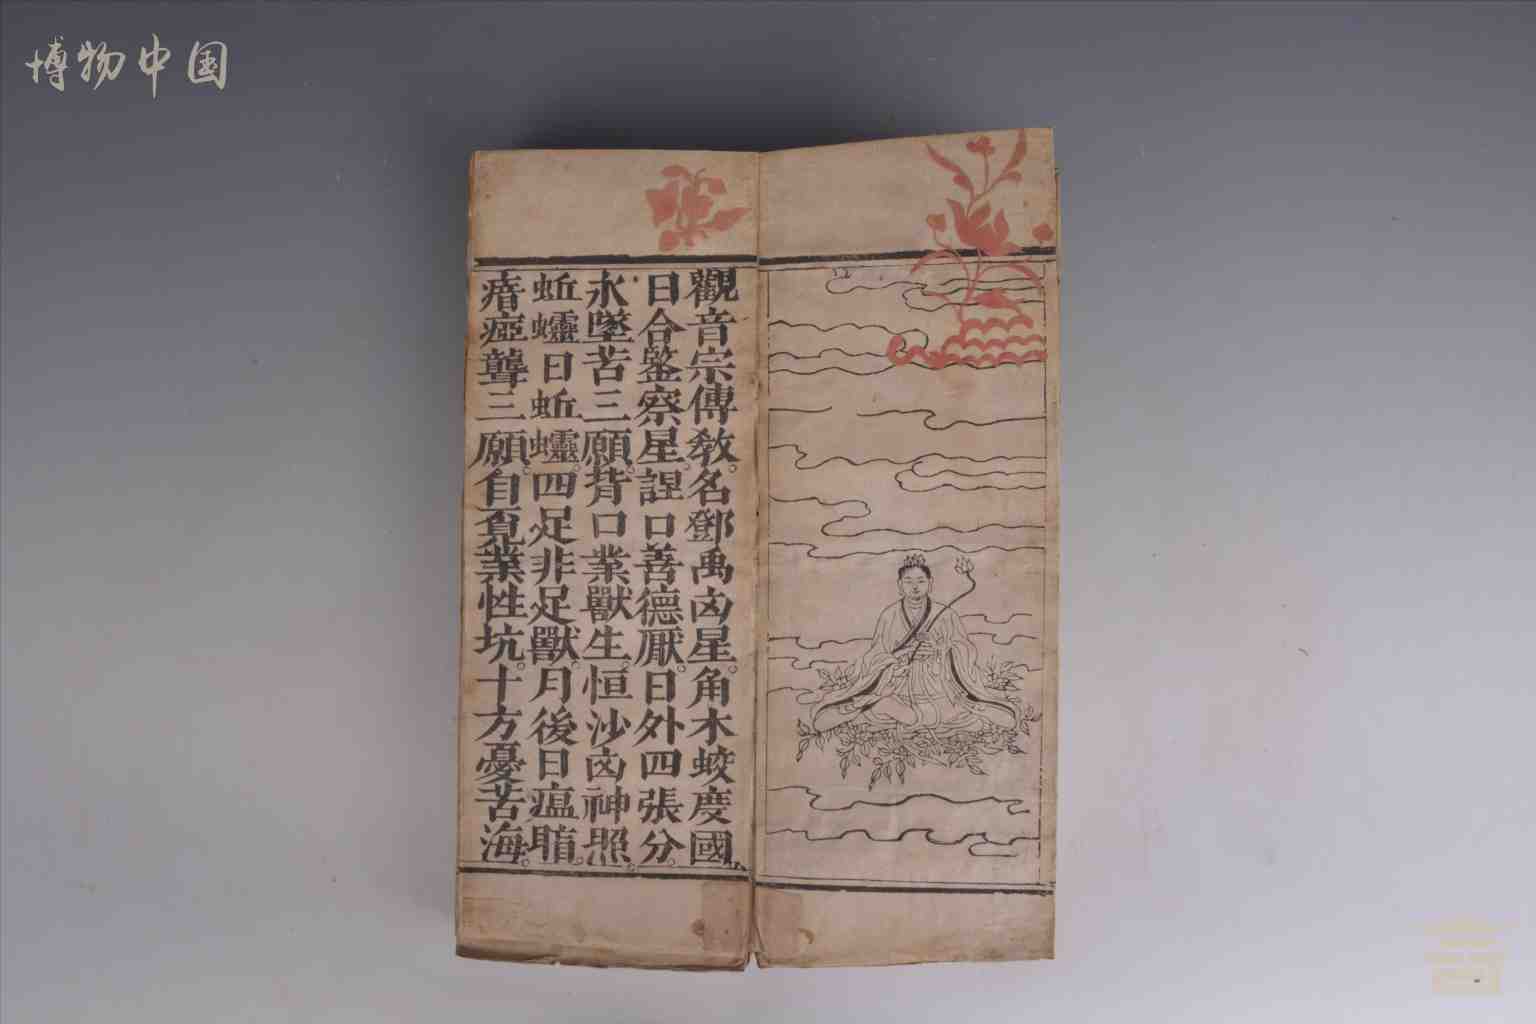 博物中国
觀音宗傳教。名鄧禹凶星。角木蛟度國
日合鑒察星。諲口善德厭。日外四張分。
永墜苦三願。背口業獸生。恒沙凶神照。
蚯蠳日蚯蠳。四足非足獸。月後日瘟䐉。
瘖瘂聾三願。自覔業性坑。十方憂苦海。